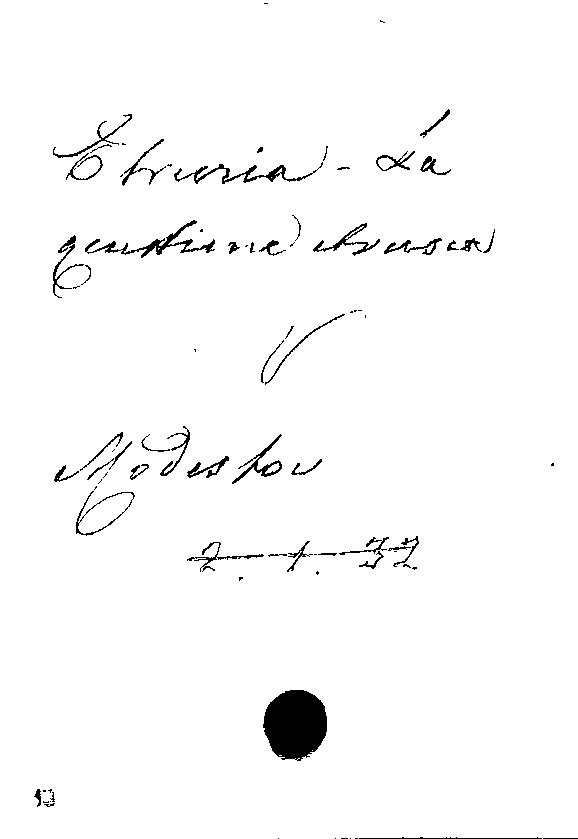 Etruria - La
questione etrusca
V
Modestov
2. 1. 32